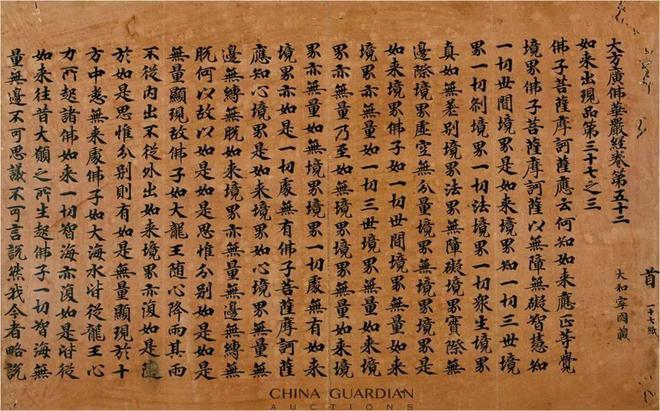 首 一十七紙
大和寧國藏
大方廣佛華嚴經卷第五十二
如來出現品第三十七之三
佛子菩薩摩訶薩應云何知如來應正等覺
境界佛子菩薩摩訶薩以無障無礙智慧知
一切世間境界是如來境界知一切三世境
界一切剎境界一切法境界一切眾生境界
真如無差別境界法界無障礙境界實際無
邊際境界虛空無分量境界無境界境界是
如來境界佛子如一切世間境界無量如來
境界亦無量如一切三世境界無量如來境
界亦無量乃至如無境界境界無量如來境
界亦無量如無境界境界一切處無有如來
境界亦如是一切處無有佛子菩薩摩訶薩
應知心境界是如來境界如心境界無量無
邊無縛無脫如來境界亦無量無邊無縛無
脫何以故以如是如是思惟分別如是如是
無量顯現故佛子如大龍王隨心降雨其雨
不從內出不從外出如來境界亦復如是隨
於如是思惟分別則有如是無量顯現於十
方中悉無來處佛子如大海水皆從龍王心
力所起諸佛如來一切智海亦復如是皆從
如來往昔大願之所生起佛子一切智海無
量無邊不可思議不可言說然我今者略說
CHINA GUARDIAN
AUCTIONS